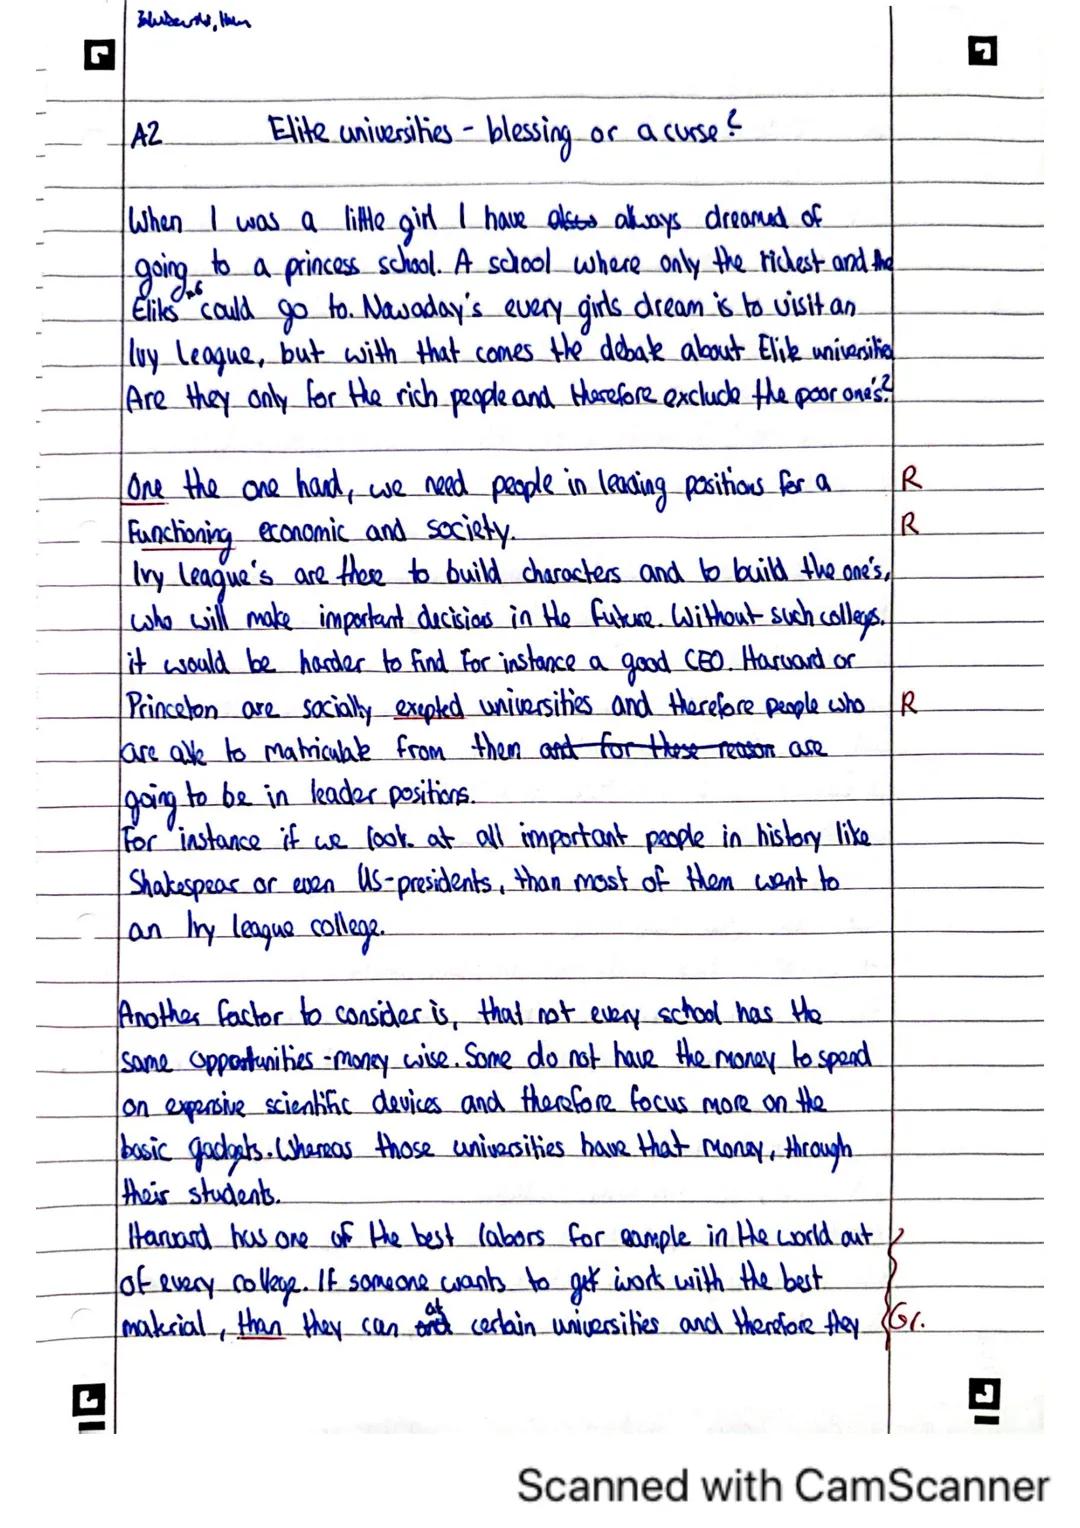 A2 Elite universities - blessing or a curse?
When I was a little girl I have also always dreamed of
going to a princess school. A school where only the richest and the
Elites could go to. Nawaday's every girls dream is to visit an
Ivy league, but with that comes the debate about Elite universities
Are they only for the rich people and therefore exclude the poor one's?
One the one hand, we need people in leading positions for a R
Functioning economic and society. R
Ivy league's are there to build characters and to build the one's,
who will make important decisions in the future. Without such colleges.
it would be harder to find for instance a good CEO. Harvard or
Princeton are socially exepted universities and therefore people who R
are able to matriculate from them and for these reason are
going to be in leader positions.
For instance if we look at all important people in history like
Shakespear or even US-presidents, than most of them went to
an Ivy league college.
Another factor to consider is, that not every school has the
same opportunities - money wise. Some do not have the money to spend
on expensive scientific devices and therefore focus more on the
basic gadgets. Whereas those universities have that money, through
their students.
Harvard has one of the best labors for eample in the world out
of every college. If someone wants to get work with the best
material, than they can at certain universities and therefore they Gr.
Scanned with CamScanner